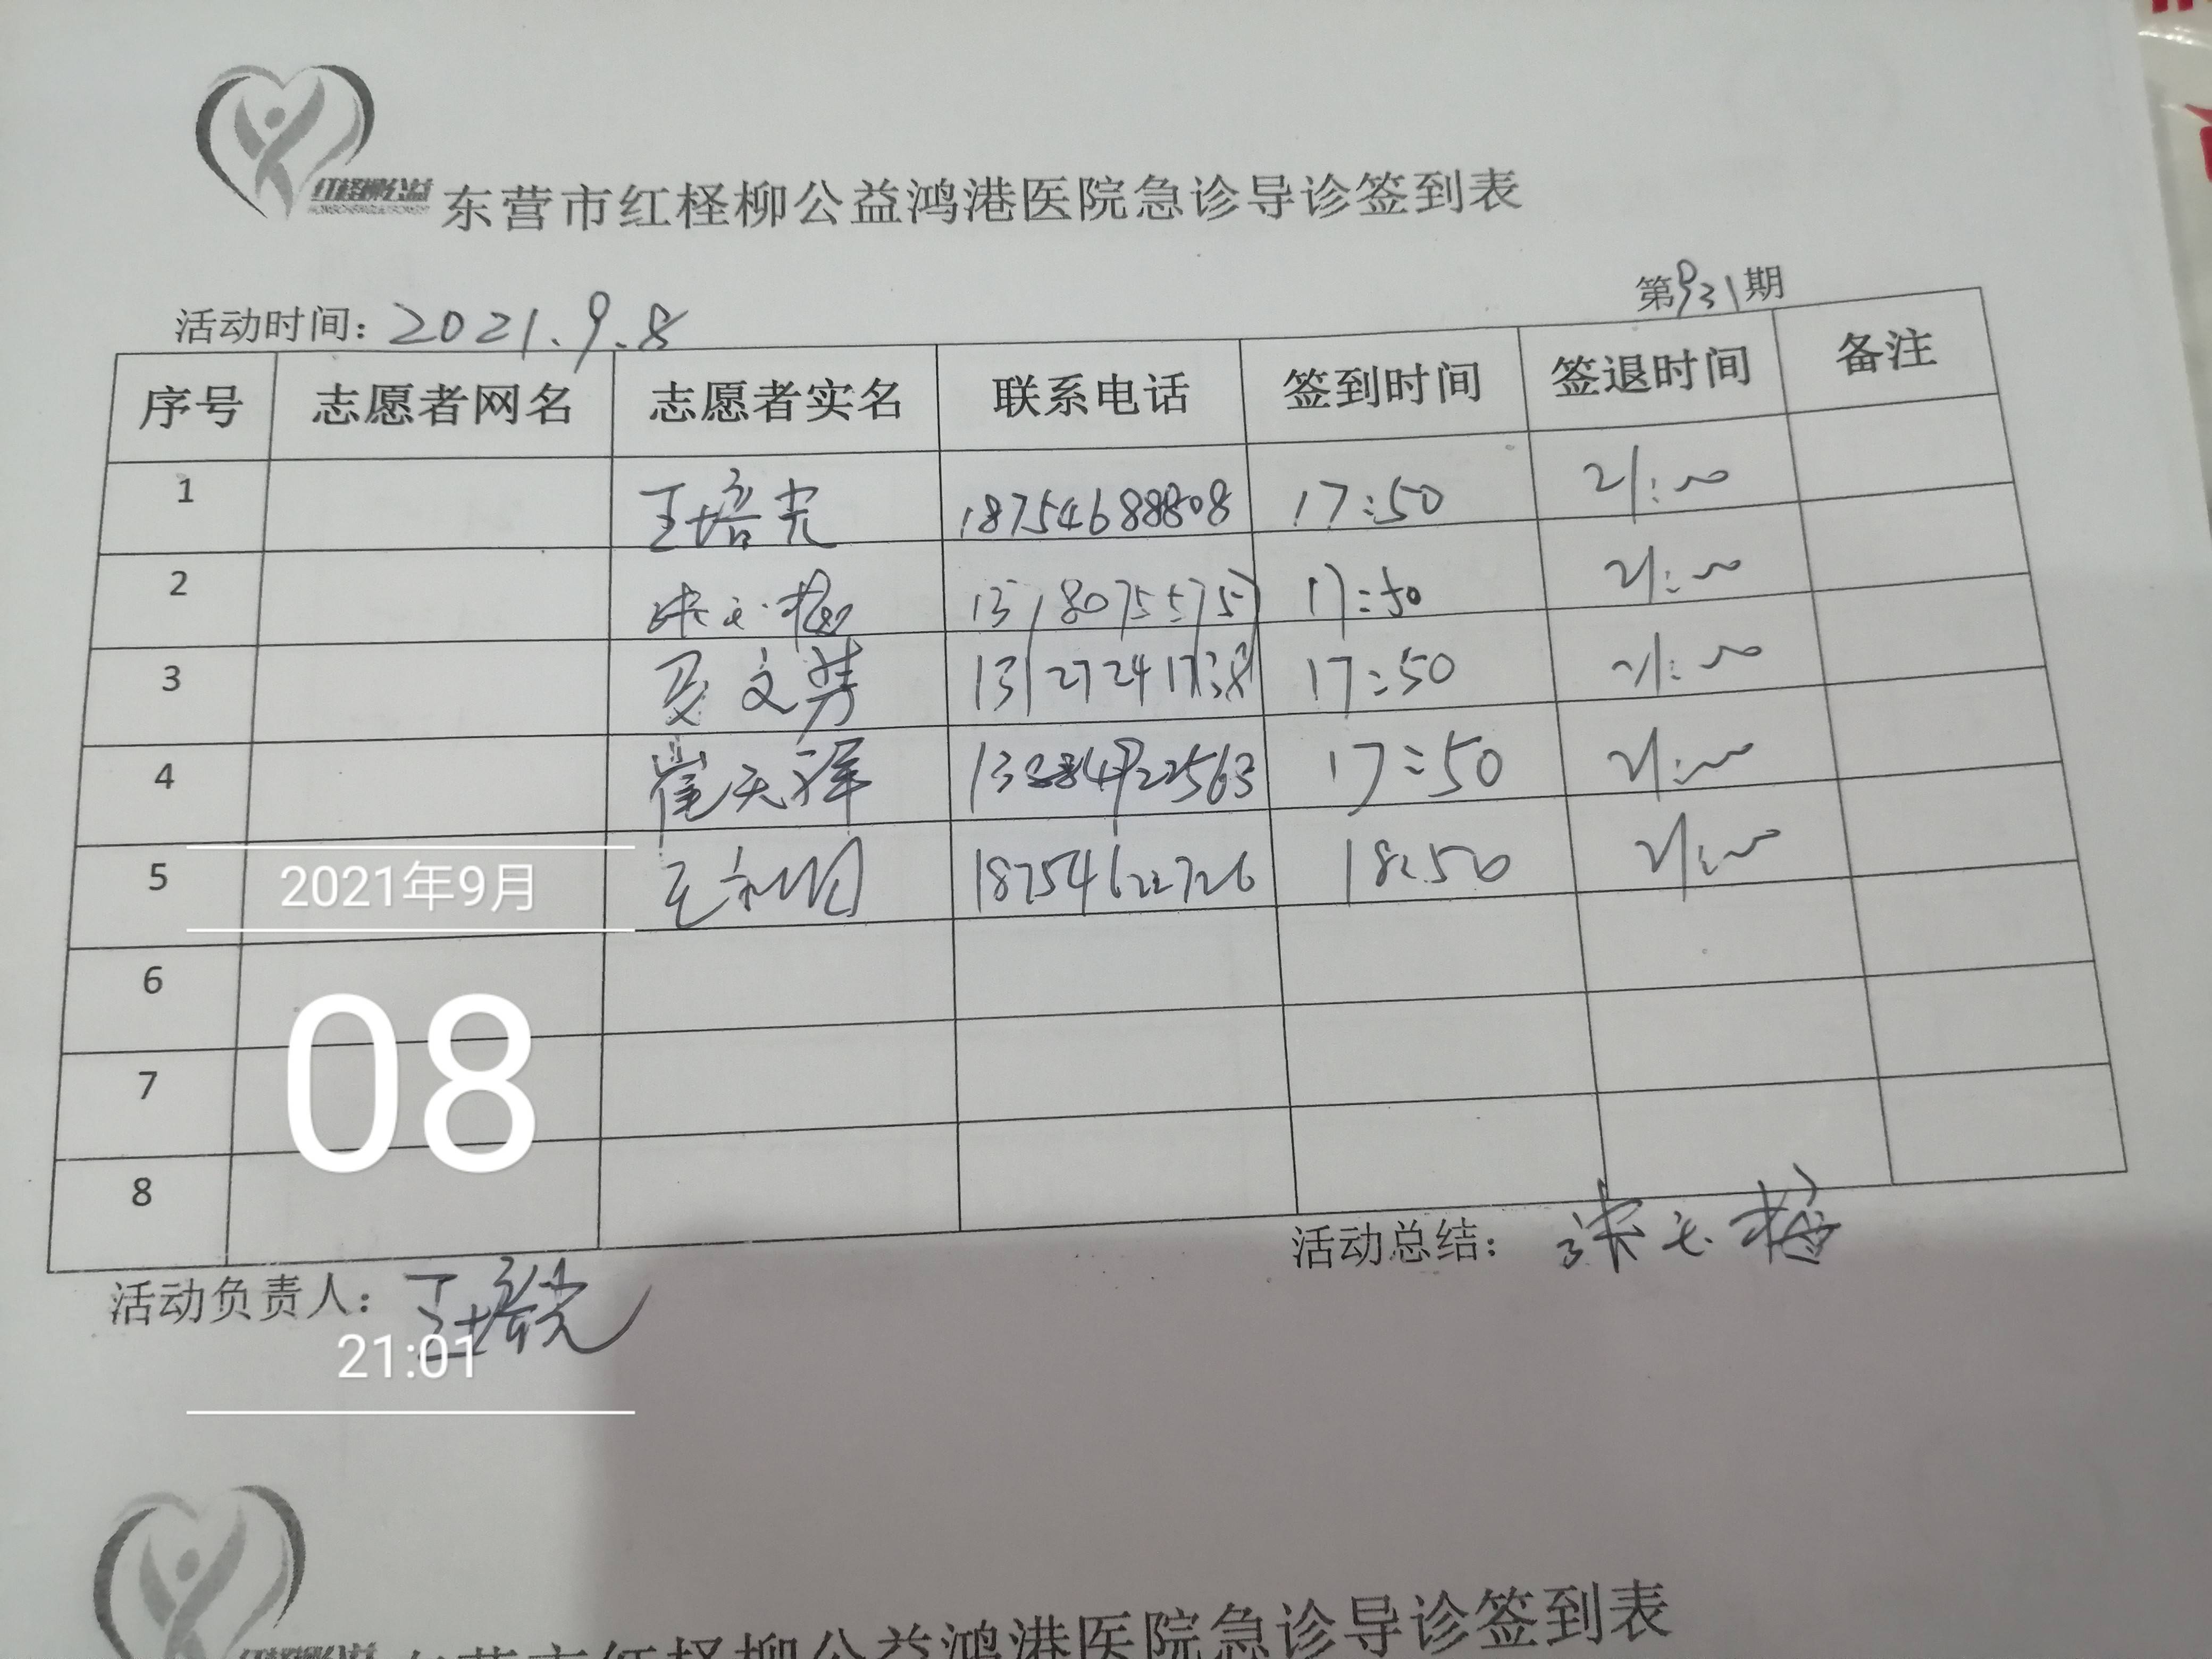 红柽柳公益
东营市红柽柳公益鸿港医院急诊导诊签到表
活动时间：2021.9.8 第931期
序号 志愿者网名 志愿者实名 联系电话 签到时间 签退时间 备注
1 王培光 18754688808 17:50 21:00
2 13180755757 17:50 21:00
3 文芳 17:50 21:00
4 崔天祥 17:50 21:00
5 18754622726 18:50 21:00
2021年9月
6
7
08
8
活动总结：
活动负责人：王培光
21:01
东营市红柽柳公益鸿港医院急诊导诊签到表